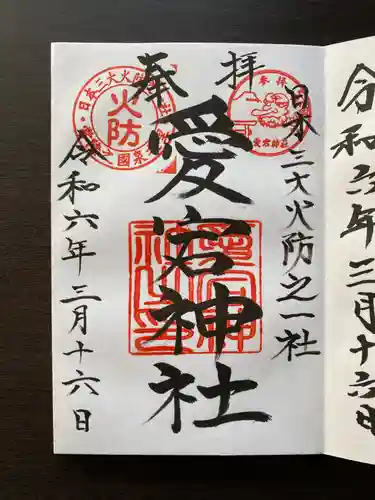 奉拝
日本三大火防之一社
愛宕神社
令和六年三月十六日
日本三大火防
火防
奉拝
愛宕神社
令和六年三月十六日